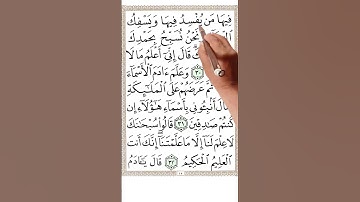 فِيهَا مَن يُفْسِدُ فِيهَا وَيَسْفِكُ
نَحْنُ نُسَبِّحُ بِحَمْدِكَ
قَالَ إِنِّىٓ أَعْلَمُ مَا لَا
٣٠ وَعَلَّمَ ءَادَمَ ٱلْأَسْمَآءَ
عَرَضَهُمْ عَلَى ٱلْمَلَـٰٓئِكَةِ
أَنۢبِـُٔونِى بِأَسْمَآءِ هَـٰٓؤُلَآءِ إِن
كُنتُمْ صَـٰدِقِينَ ٣١ قَالُوا۟ سُبْحَـٰنَكَ
لَا عِلْمَ لَنَآ إِلَّا مَا عَلَّمْتَنَآ إِنَّكَ أَنتَ
ٱلْعَلِيمُ ٱلْحَكِيمُ ٣٢ قَالَ يَـٰٓـَٔادَمُ